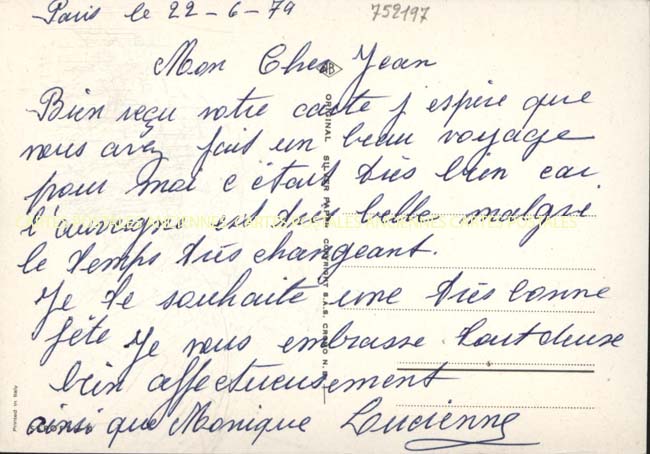 Paris le 22-6-79
752197
Mon Cher Jean
Bien reçu votre carte j espère que
vous avez fait un beau voyage
pour moi c'était très bien car
l'auvergne est très belle malgré
le temps très changeant.
Je te souhaite une très bonne
fête Je vous embrasse tout deux
bien affectueusement
ainsi que Monique Lucienne
ORIGINAL SUPER PAPER COPYRIGHT S.A.S.
Printed in Italy
CARTES POSTALES ANCIENNES CARTES POSTALES ANCIENNES CARTES POSTALES